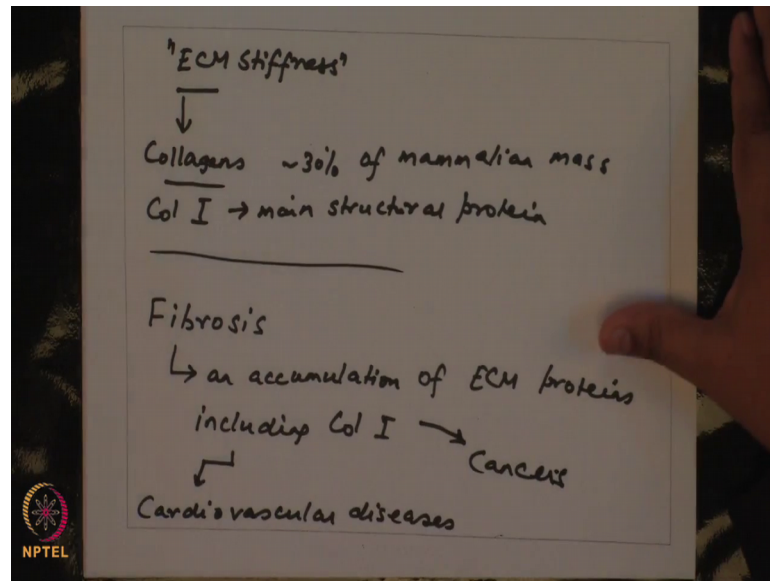 "ECM Stiffness"
Collagens ~30% of mammalian mass
Col I → main structural protein
Fibrosis
↳ an accumulation of ECM proteins
including Col I → Cancers
Cardiovascular diseases
NPTEL